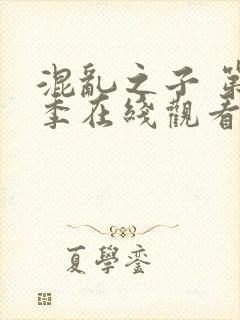 混亂之子 第
季在綫觀看
夏學鑾